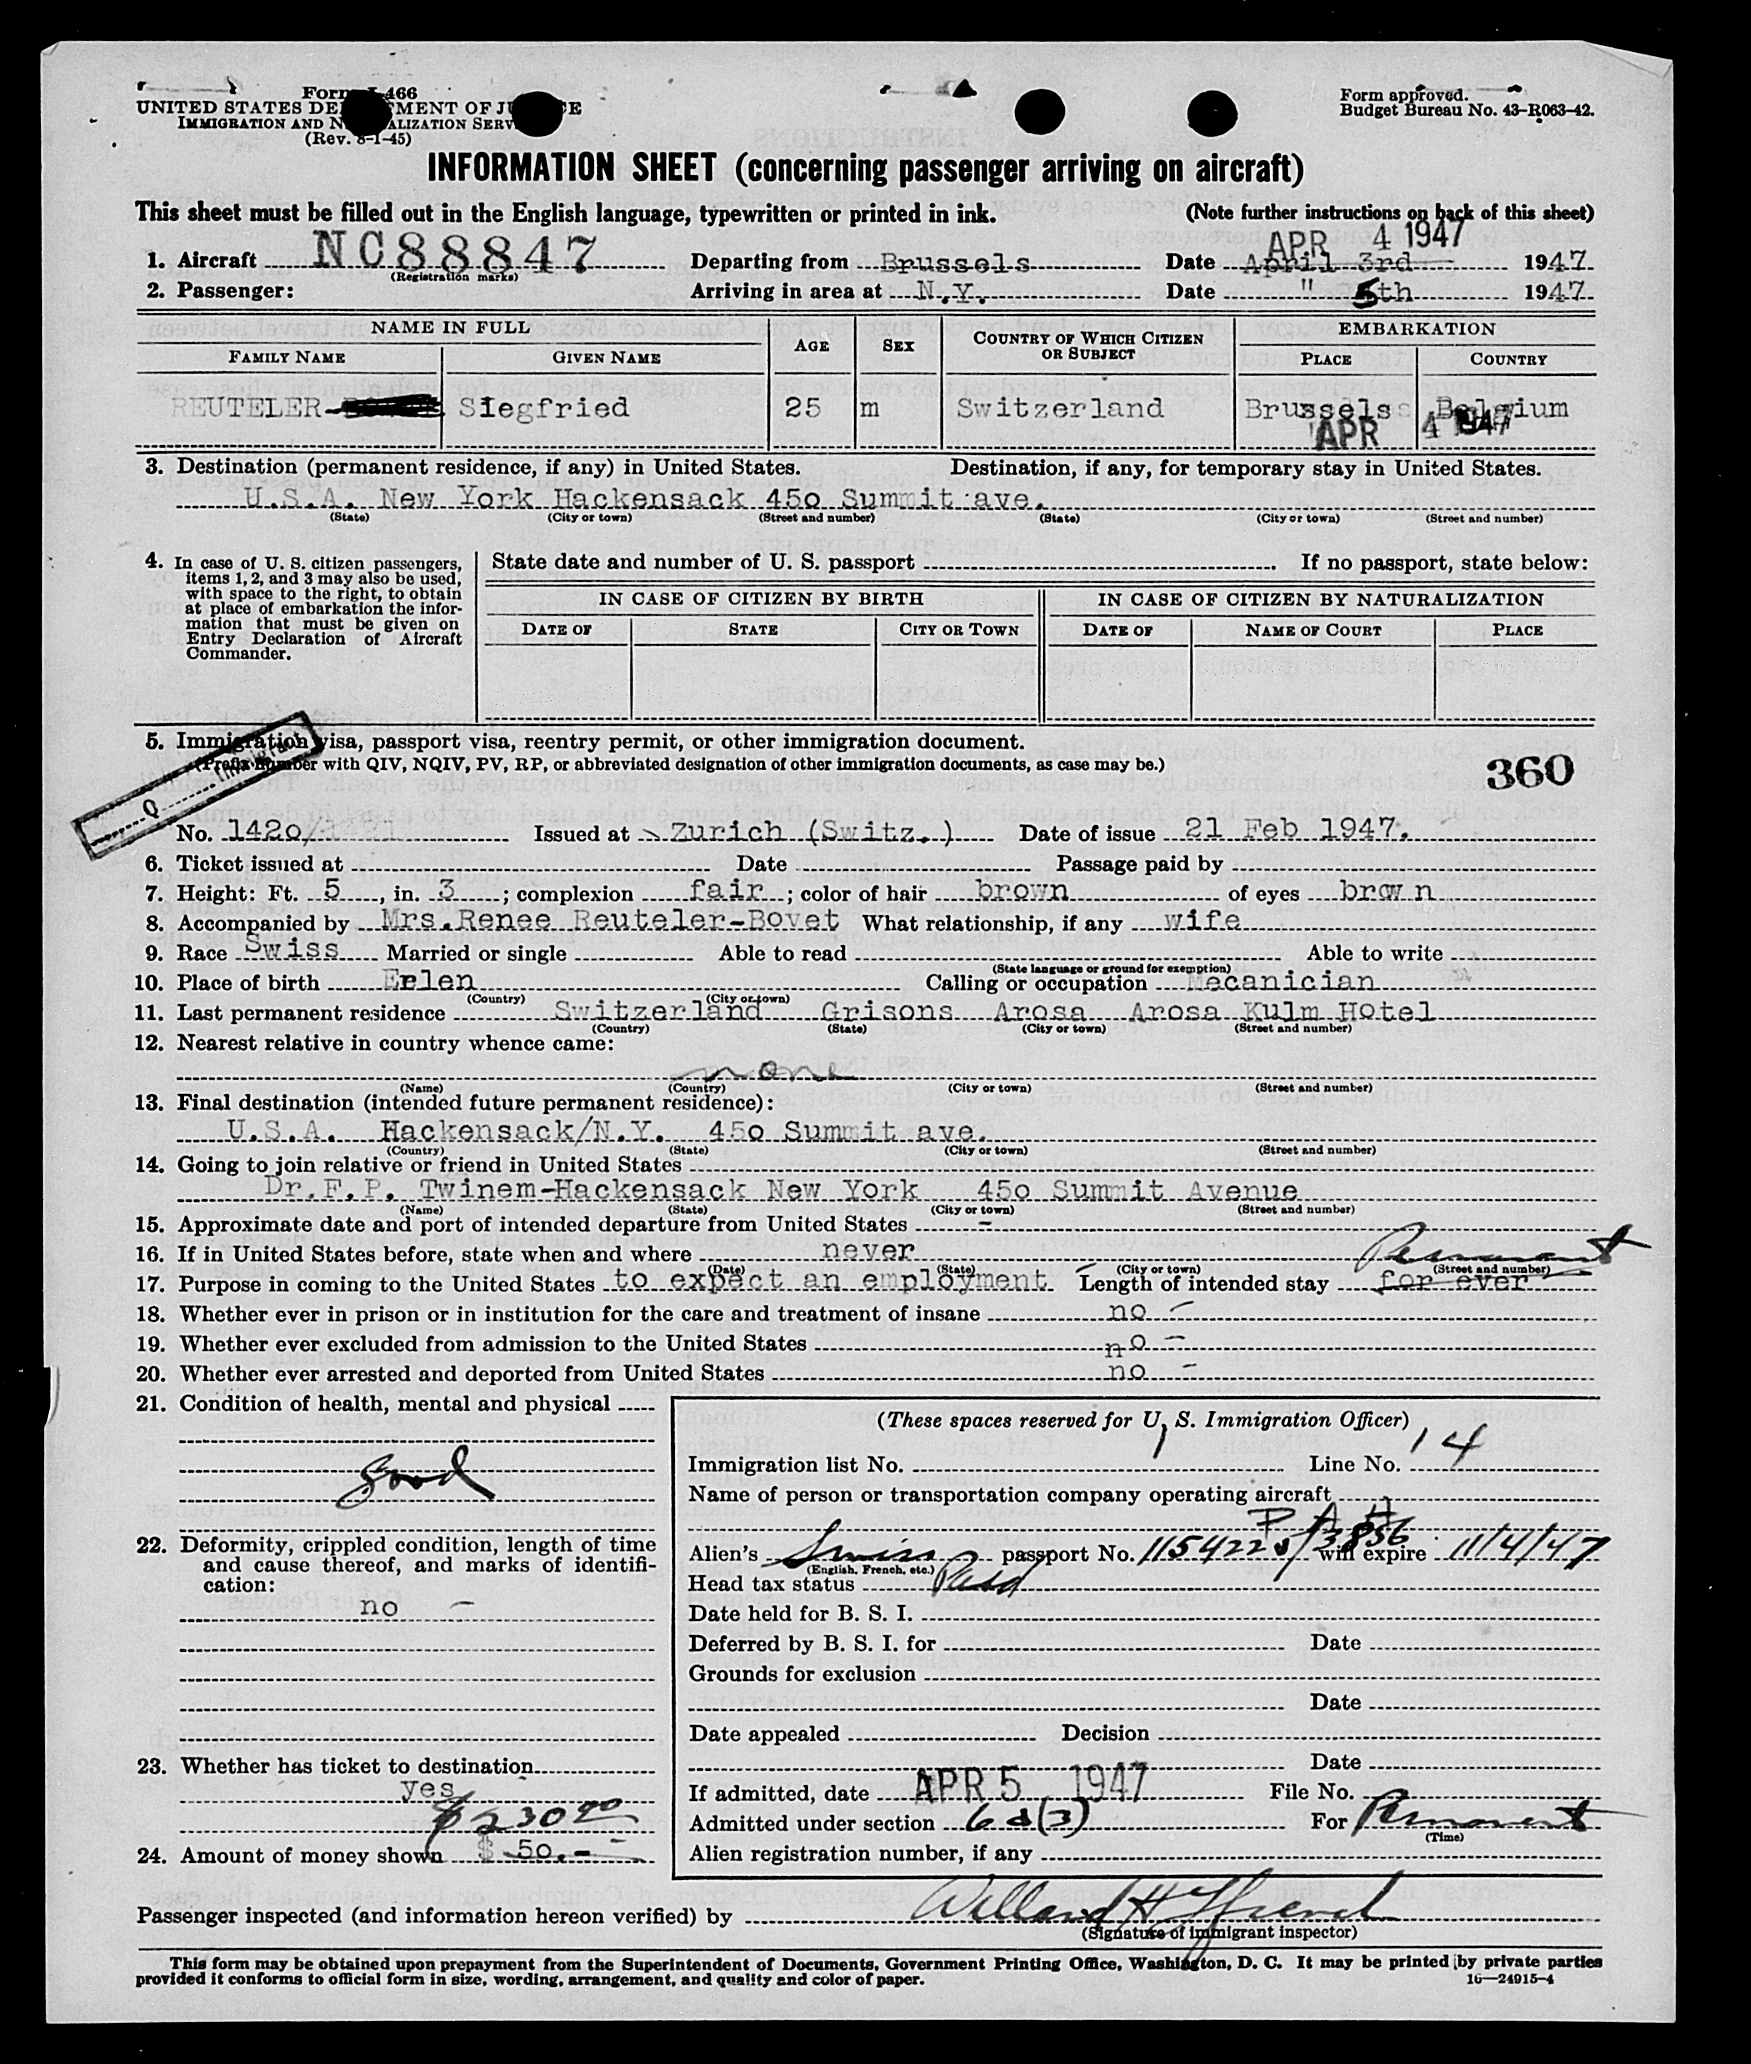 Form I-466
UNITED STATES DEPARTMENT OF JUSTICE
IMMIGRATION AND NATURALIZATION SERVICE
(Rev. 8-1-45)
Form approved.
Budget Bureau No. 43-R063-42.
INFORMATION SHEET (concerning passenger arriving on aircraft)
This sheet must be filled out in the English language, typewritten or printed in ink. (Note further instructions on back of this sheet)
APR 4 1947
1. Aircraft NC88847 Departing from Brussels Date April 3rd 1947
(Registration marks)
2. Passenger: Arriving in area at N.Y. Date " 5th 1947
NAME IN FULL AGE SEX COUNTRY OF WHICH CITIZEN OR SUBJECT EMBARKATION
FAMILY NAME GIVEN NAME PLACE COUNTRY
REUTELER- Siegfried 25 m Switzerland Brussels Belgium
APR 4 1947
3. Destination (permanent residence, if any) in United States. Destination, if any, for temporary stay in United States.
U.S.A. New York Hackensack 45o Summit ave.
(State) (City or town) (Street and number) (State) (City or town) (Street and number)
4. In case of U. S. citizen passengers,
items 1, 2, and 3 may also be used,
with space to the right, to obtain
at place of embarkation the infor-
mation that must be given on
Entry Declaration of Aircraft
Commander.
State date and number of U. S. passport . If no passport, state below:
IN CASE OF CITIZEN BY BIRTH IN CASE OF CITIZEN BY NATURALIZATION
DATE OF STATE CITY OR TOWN DATE OF NAME OF COURT PLACE
5. Immigration visa, passport visa, reentry permit, or other immigration document.
(Prefix number with QIV, NQIV, PV, RP, or abbreviated designation of other immigration documents, as case may be.)
360
Q Immigrant
No. 142o/1421 Issued at Zurich (Switz.) Date of issue 21 Feb 1947.
6. Ticket issued at Date Passage paid by
7. Height: Ft. 5, in. 3; complexion fair; color of hair brown of eyes brown
8. Accompanied by Mrs.Renee Reuteler-Bovet What relationship, if any wife
9. Race Swiss Married or single Able to read Able to write
(State language or ground for exemption)
10. Place of birth Erlen Calling or occupation Mecanician
(Country) (City or town)
11. Last permanent residence Switzerland Grisons Arosa Arosa Kulm Hotel
(Country) (State) (City or town) (Street and number)
12. Nearest relative in country whence came:
none
(Name) (Country) (City or town) (Street and number)
13. Final destination (intended future permanent residence):
U.S.A. Hackensack/N.Y. 45o Summit ave.
(Country) (State) (City or town) (Street and number)
14. Going to join relative or friend in United States
Dr.F.P. Twinem-Hackensack New York 45o Summit Avenue
(Name) (State) (City or town) (Street and number)
15. Approximate date and port of intended departure from United States -
16. If in United States before, state when and where never Permanent
(Date) (State) (City or town) (Street and number)
17. Purpose in coming to the United States to expect an employment Length of intended stay for ever
18. Whether ever in prison or in institution for the care and treatment of insane no -
19. Whether ever excluded from admission to the United States no -
20. Whether ever arrested and deported from United States no -
21. Condition of health, mental and physical
good
22. Deformity, crippled condition, length of time
and cause thereof, and marks of identifi-
cation:
no -
23. Whether has ticket to destination
yes
$230 00
24. Amount of money shown $ 5o.-
(These spaces reserved for U. S. Immigration Officer)
Immigration list No. 1 Line No. 14
Name of person or transportation company operating aircraft
P A A
Alien's Swiss passport No. 1154220/3856 will expire 11/4/47
(English, French, etc.)
Head tax status Paid
Date held for B. S. I.
Deferred by B. S. I. for Date
Grounds for exclusion
Date
Date appealed Decision
Date
If admitted, date APR 5 1947 File No.
Admitted under section 6a(3) For Permanent
(Time)
Alien registration number, if any
Passenger inspected (and information hereon verified) by Willard H
(Signature of immigrant inspector)
This form may be obtained upon prepayment from the Superintendent of Documents, Government Printing Office, Washington, D. C. It may be printed by private parties
provided it conforms to official form in size, wording, arrangement, and quality and color of paper. 16—24915-4